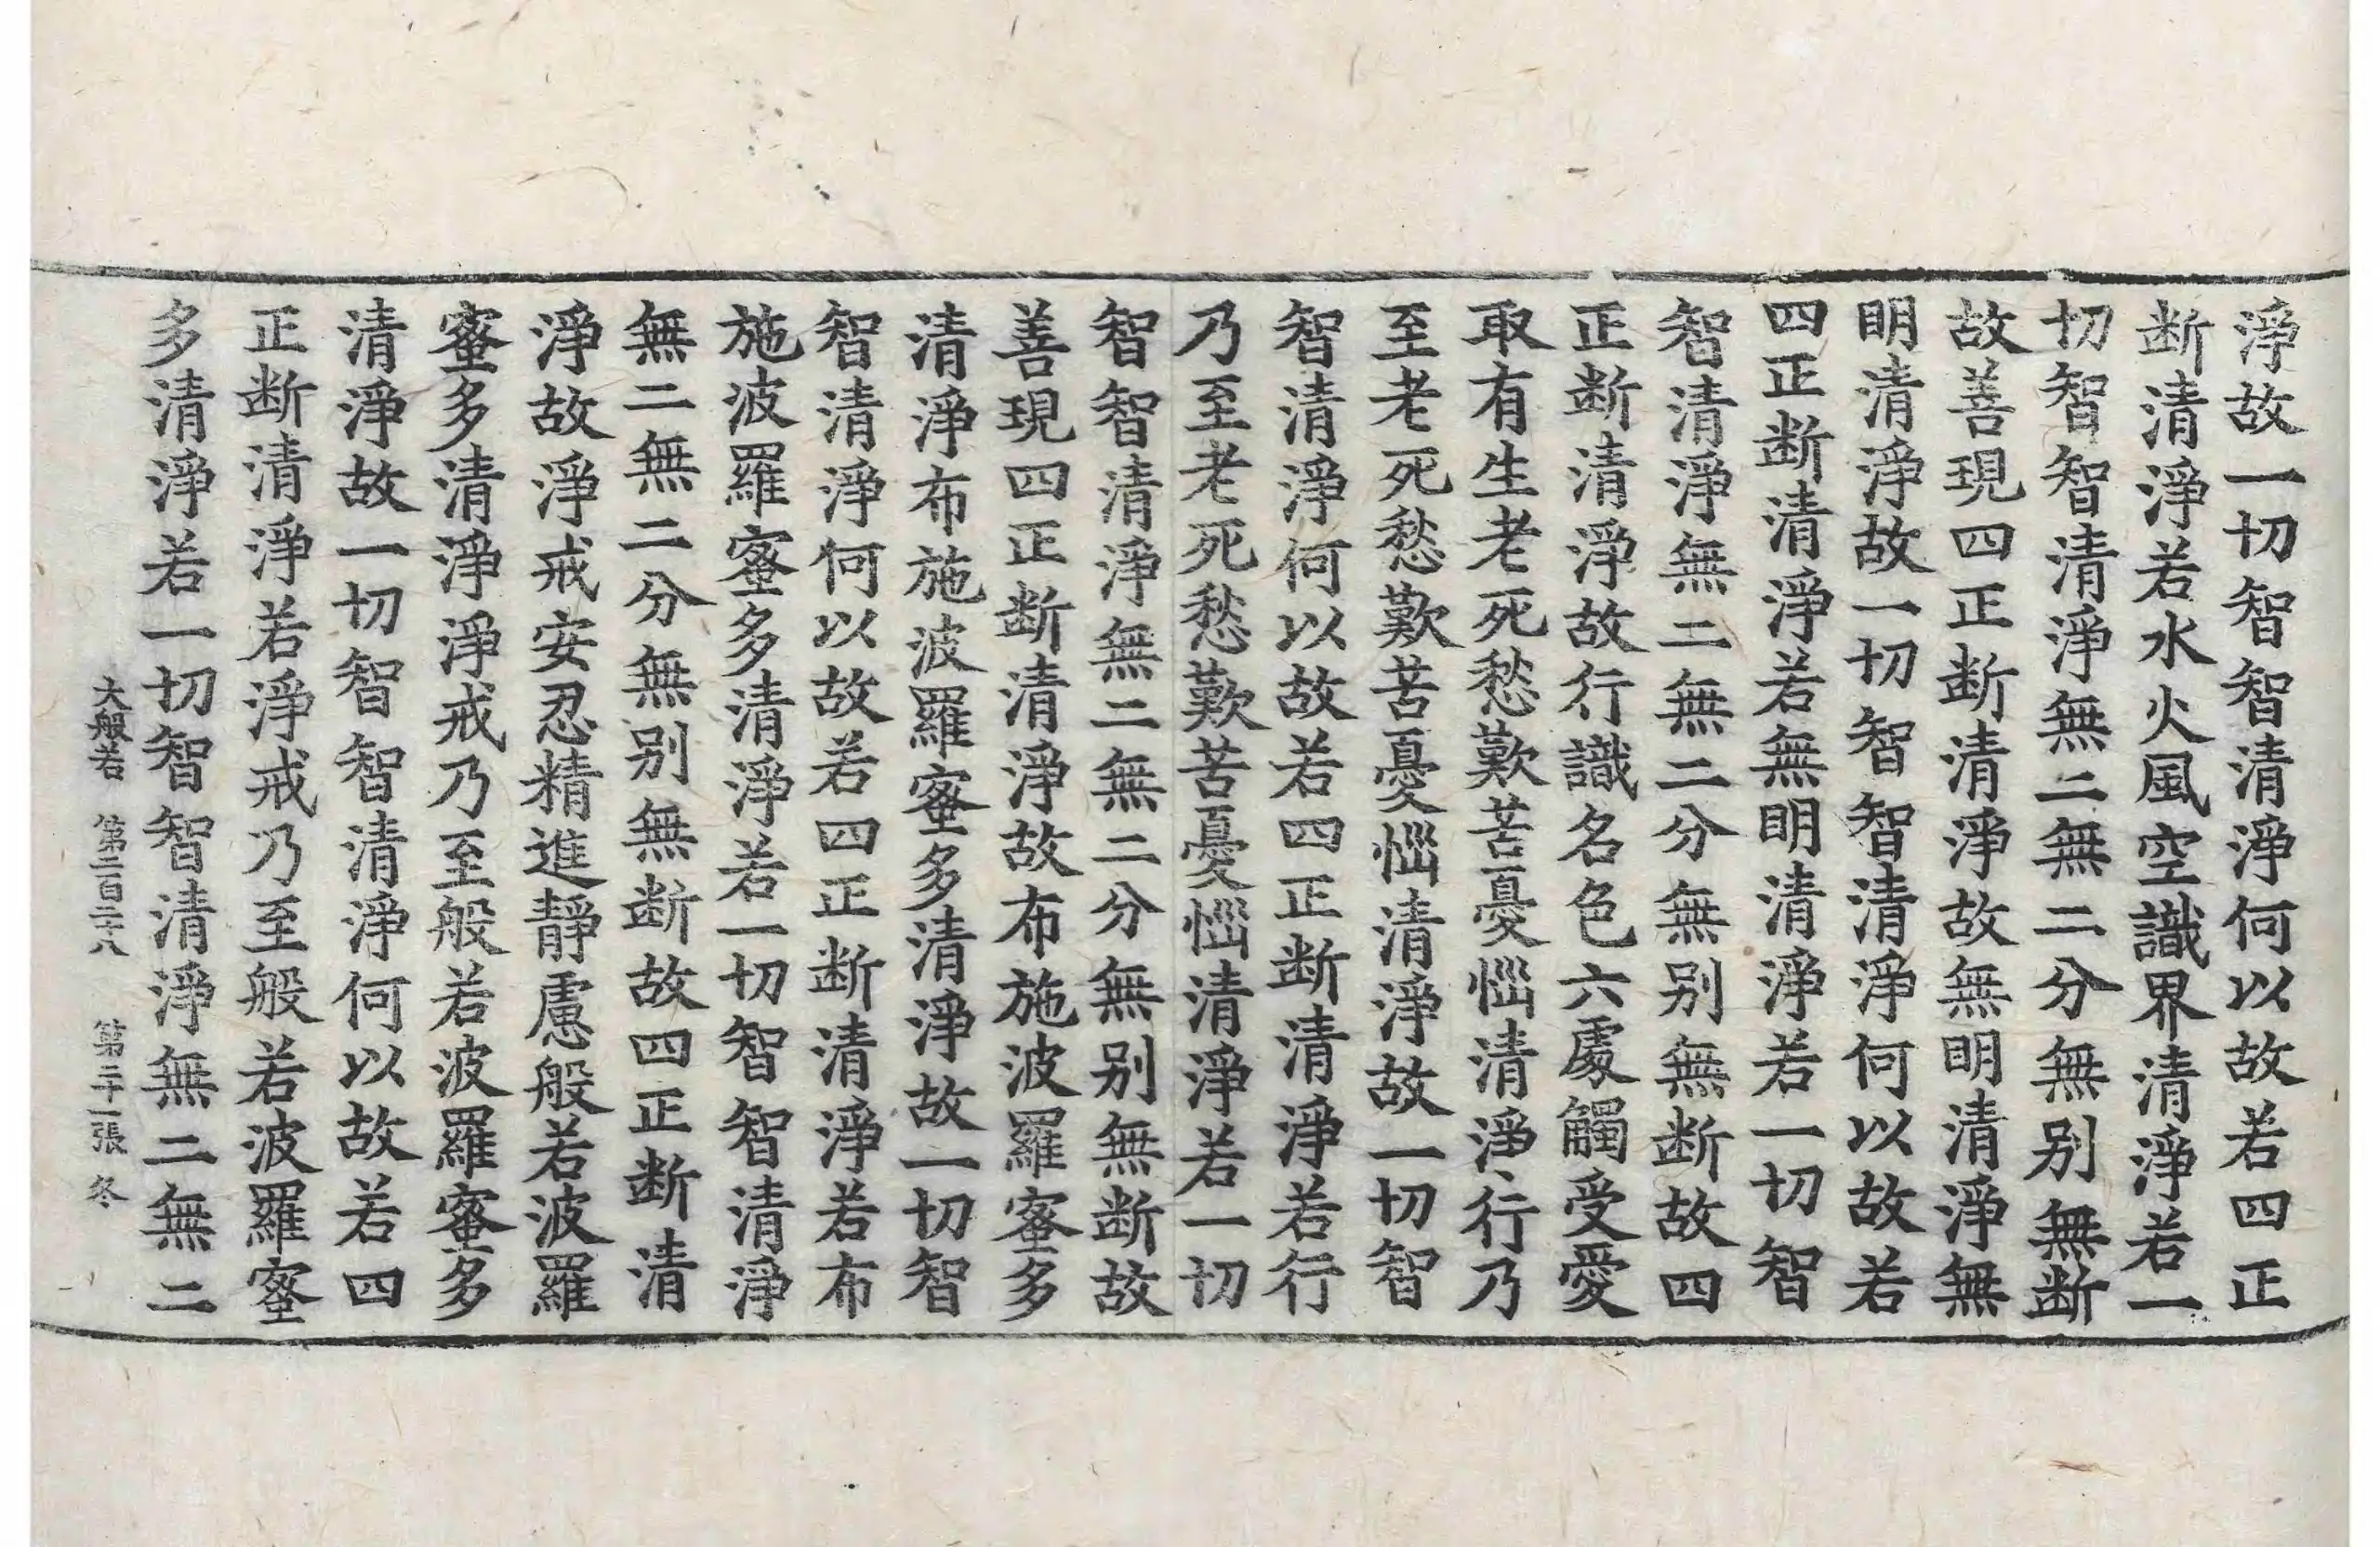 淨故一切智智清淨何以故若四正
断清淨若水火風空識界清淨若一
切智智清淨無二無二分無別無断
故善現四正断清淨故無明清淨無
明清淨故一切智智清淨何以故若
四正断清淨若無明清淨若一切智
智清淨無二無二分無別無断故四
正断清淨故行識名色六處觸受愛
取有生老死愁歎苦憂惱清淨行乃
至老死愁歎苦憂惱清淨故一切智
智清淨何以故若四正断清淨若行
乃至老死愁歎苦憂惱清淨若一切
智智清淨無二無二分無別無断故
善現四正断清淨故布施波羅蜜多
清淨布施波羅蜜多清淨故一切智
智清淨何以故若四正断清淨若布
施波羅蜜多清淨若一切智智清淨
無二無二分無別無断故四正断清
淨故淨戒安忍精進靜慮般若波羅
蜜多清淨淨戒乃至般若波羅蜜多
清淨故一切智智清淨何以故若四
正断清淨若淨戒乃至般若波羅蜜
多清淨若一切智智清淨無二無二
大般若 第二百二十八 第二十一張 冬